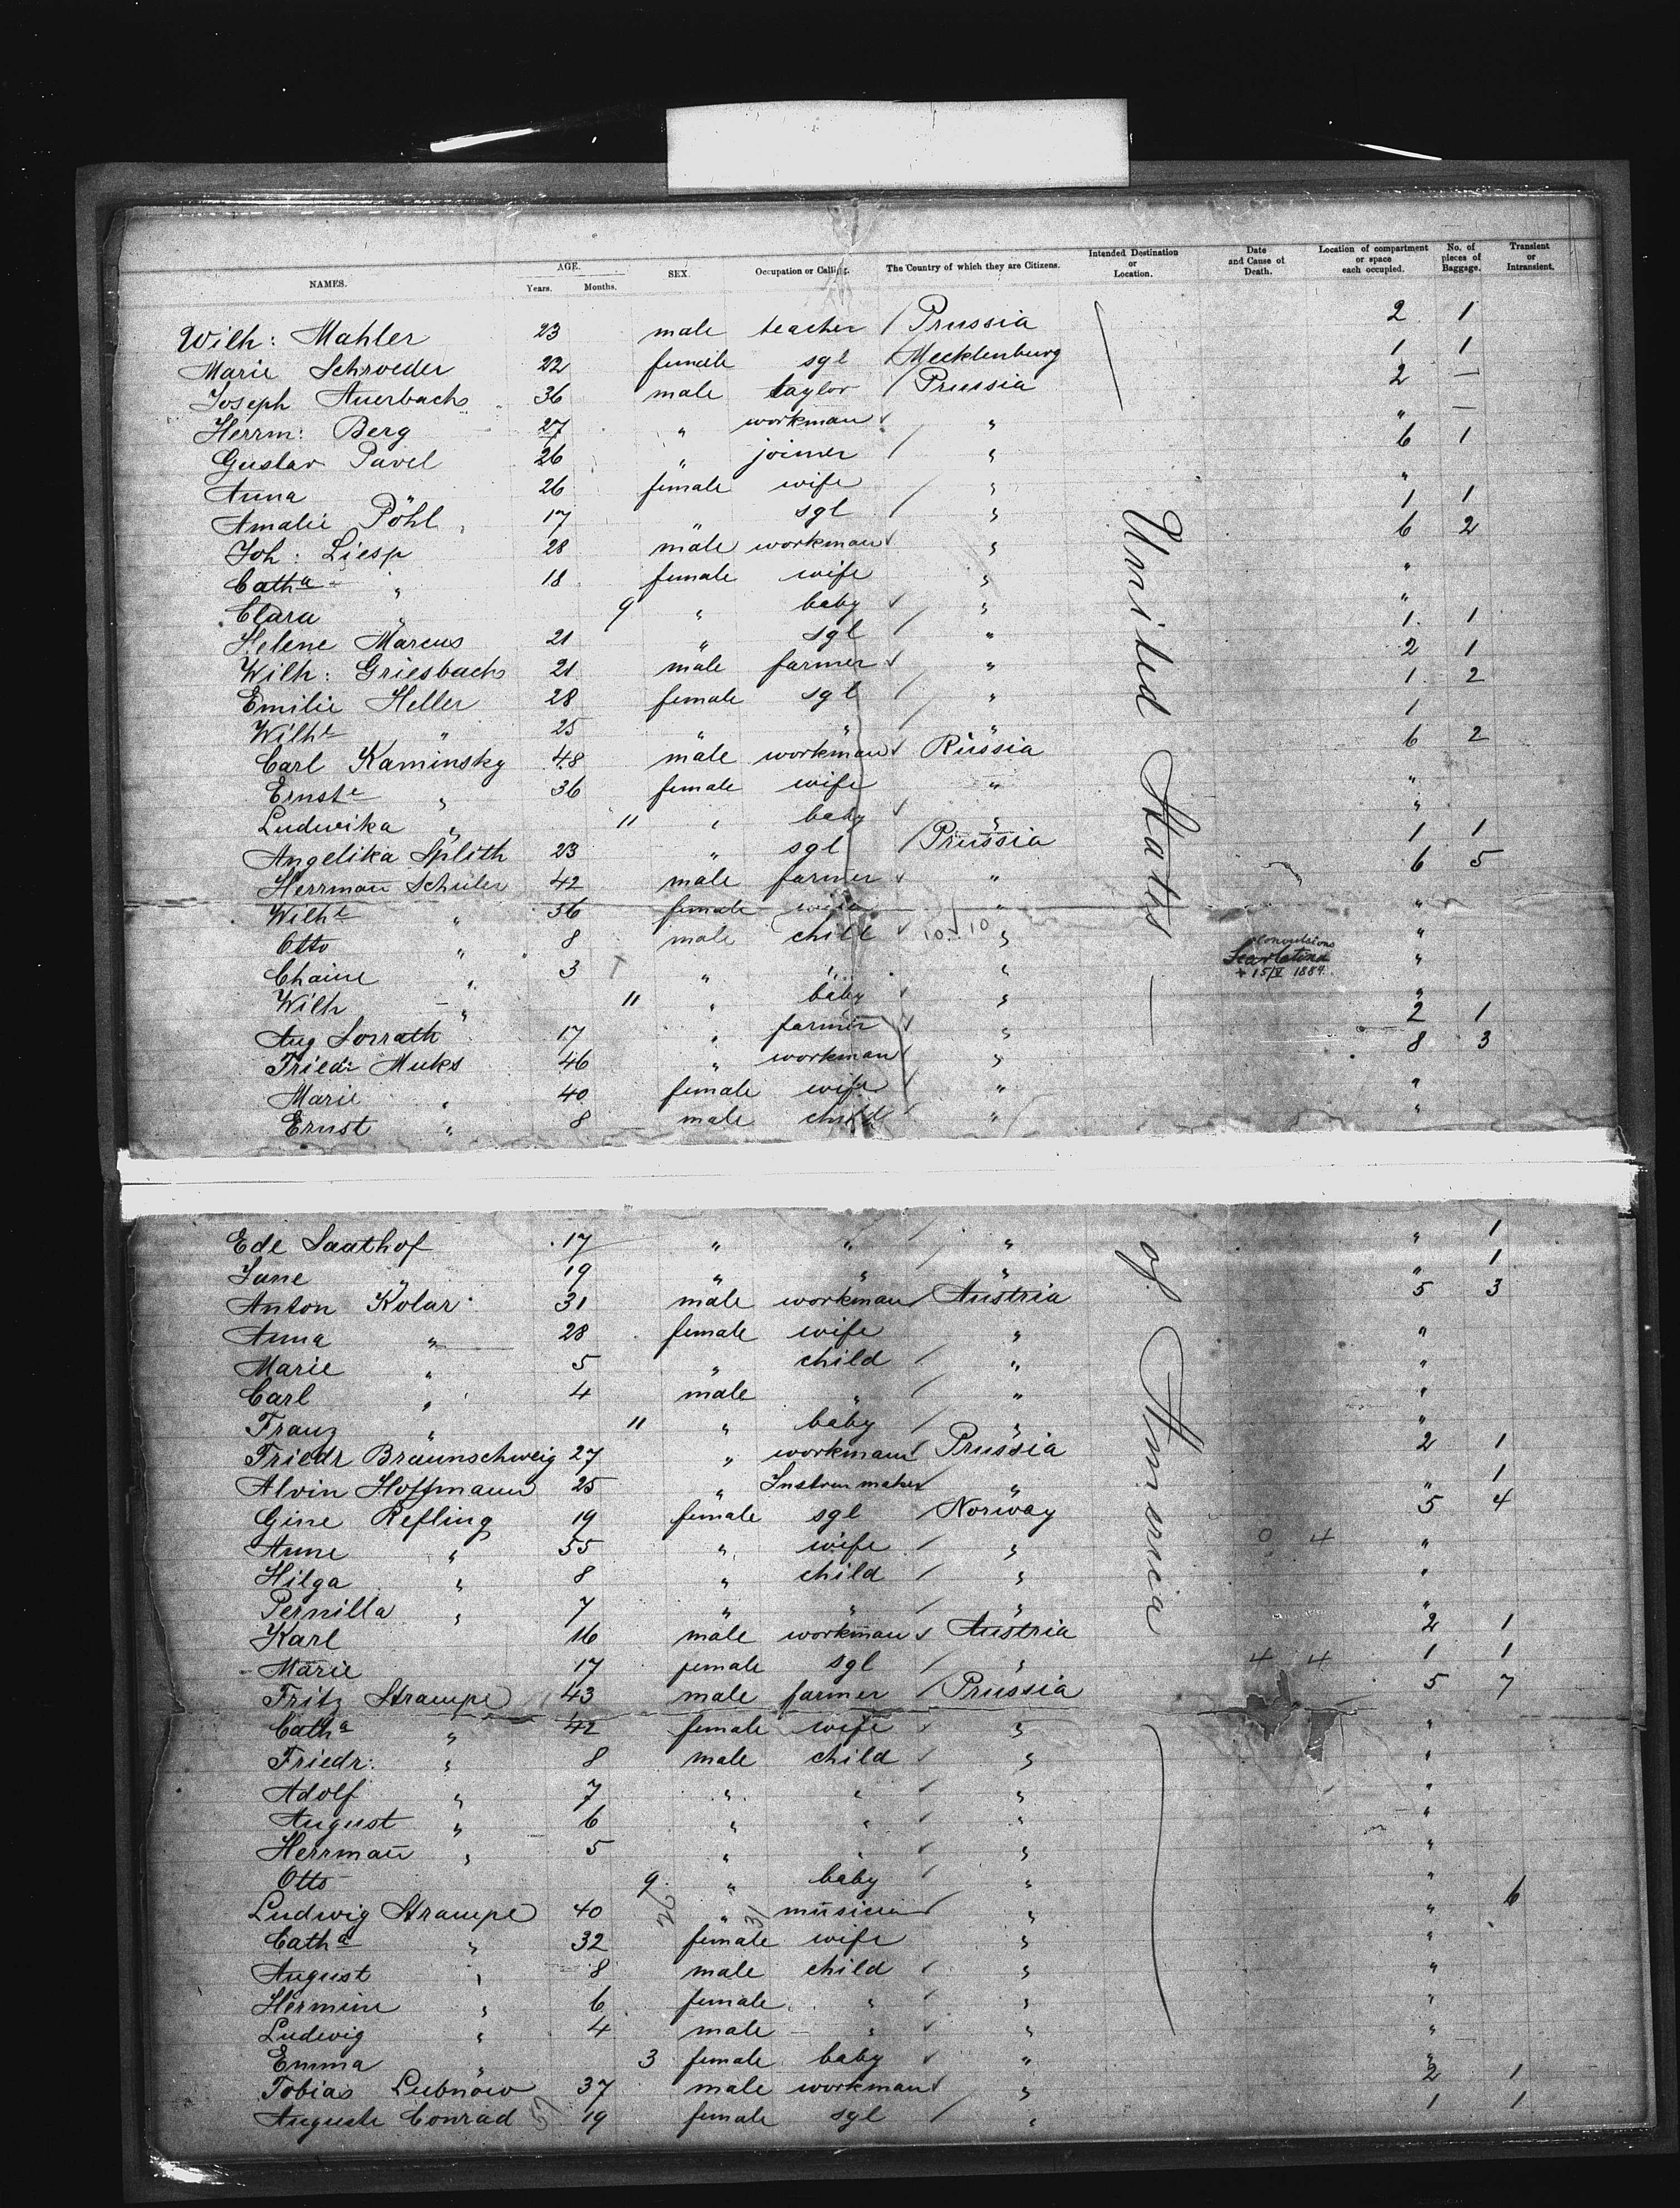 NAMES. AGE. Years. Months. SEX. Occupation or Calling. The Country of which they are Citizens. Intended Destination or Location. Date and Cause of Death. Location of compartment or space each occupied. No. of pieces of Baggage. Transient or Intransient.
Wilh: Mahler 23 male teacher / Prussia 2 1
Marie Schroeder 22 female sgl / Mecklenburg 1 1
Joseph Auerbach 36 male taylor / Prussia 2 —
Herrm: Berg 27 " workman ✓ " " —
Gustav Pavel 26 " joiner / " 6 1
Anna " 26 female wife / " "
Amalie Pöhl 17 " sgl / " 1 1
Joh: Liesp 28 male workman ✓ " 6 2
Catha " 18 female wife " "
Clara " 9 " baby ✓ " "
Helene Marcus 21 " sgl / " 1 1
Wilh: Griesbach 21 male farmer ✓ " 2 1
Emilie Heller 28 female sgl / " 1 2
Wilhe " 25 " " / " 1
Carl Kaminsky 48 male workman ✓ Russia 6 2
Ernste " 36 female wife " "
Ludwika " 11 " baby ✓ " "
Angelika Splith 23 " sgl / Prussia 1 1
Herrmañ Schuler 42 male farmer ✓ " 6 5
Wilhe " 36 female " "
Otto " 8 male child ✓ 10 10 " "
Chaine " 3 † " " " Convulsions Scarlatina + 15/V 1884. "
Wilh " 11 " baby ✓ " "
Aug Sorrath 17 " farmer ✓ " 2 1
Friedr Muks 46 " workman ✓ " 8 3
Marie " 40 female wife ✓ " "
Ernst " 8 male child ✓ " "
United States of America
Ede Saathof 17 " " / " " 1
Jane " 19 " " / " " 1
Anton Kolar 31 male workman ✓ Austria 5 3
Anna " 28 female wife " "
Marie " 5 " child / " "
Carl " 4 male " / " "
Franz " 11 " baby / " "
Friedr Braunschweig 27 " workman ✓ Prussia 2 1
Alvin Hoffmann 25 " Instrum maker / " " 1
Gine Refling 19 female sgl / Norway 5 4
Anne " 55 " wife / " 0 4 "
Hilga " 8 " child / " "
Pernilla " 7 " " / " "
Karl 16 male workman ✓ Austria 2 1
Marie 17 female sgl / " 4 4 1 1
Fritz Strampe 43 male farmer / Prussia 5 7
Catha " 42 female wife ✓ " "
Friedr: " 8 male child ✓ " "
Adolf " 7 " " ✓ " "
August " 6 " " ✓ " "
Herrmañ " 5 " " ✓ " "
Otto 9 " baby / " "
Ludwig Strampe 40 26 " 31 musician / " " 6
Catha " 32 female wife " "
August " 8 male child ✓ " "
Hermine " 6 female " / " "
Ludwig " 4 male " ✓ " "
Emma " 3 female baby ✓ " "
Tobias Lubnow 37 male workman ✓ " 2 1
Auguste Conrad 57 19 female sgl / " 1 1